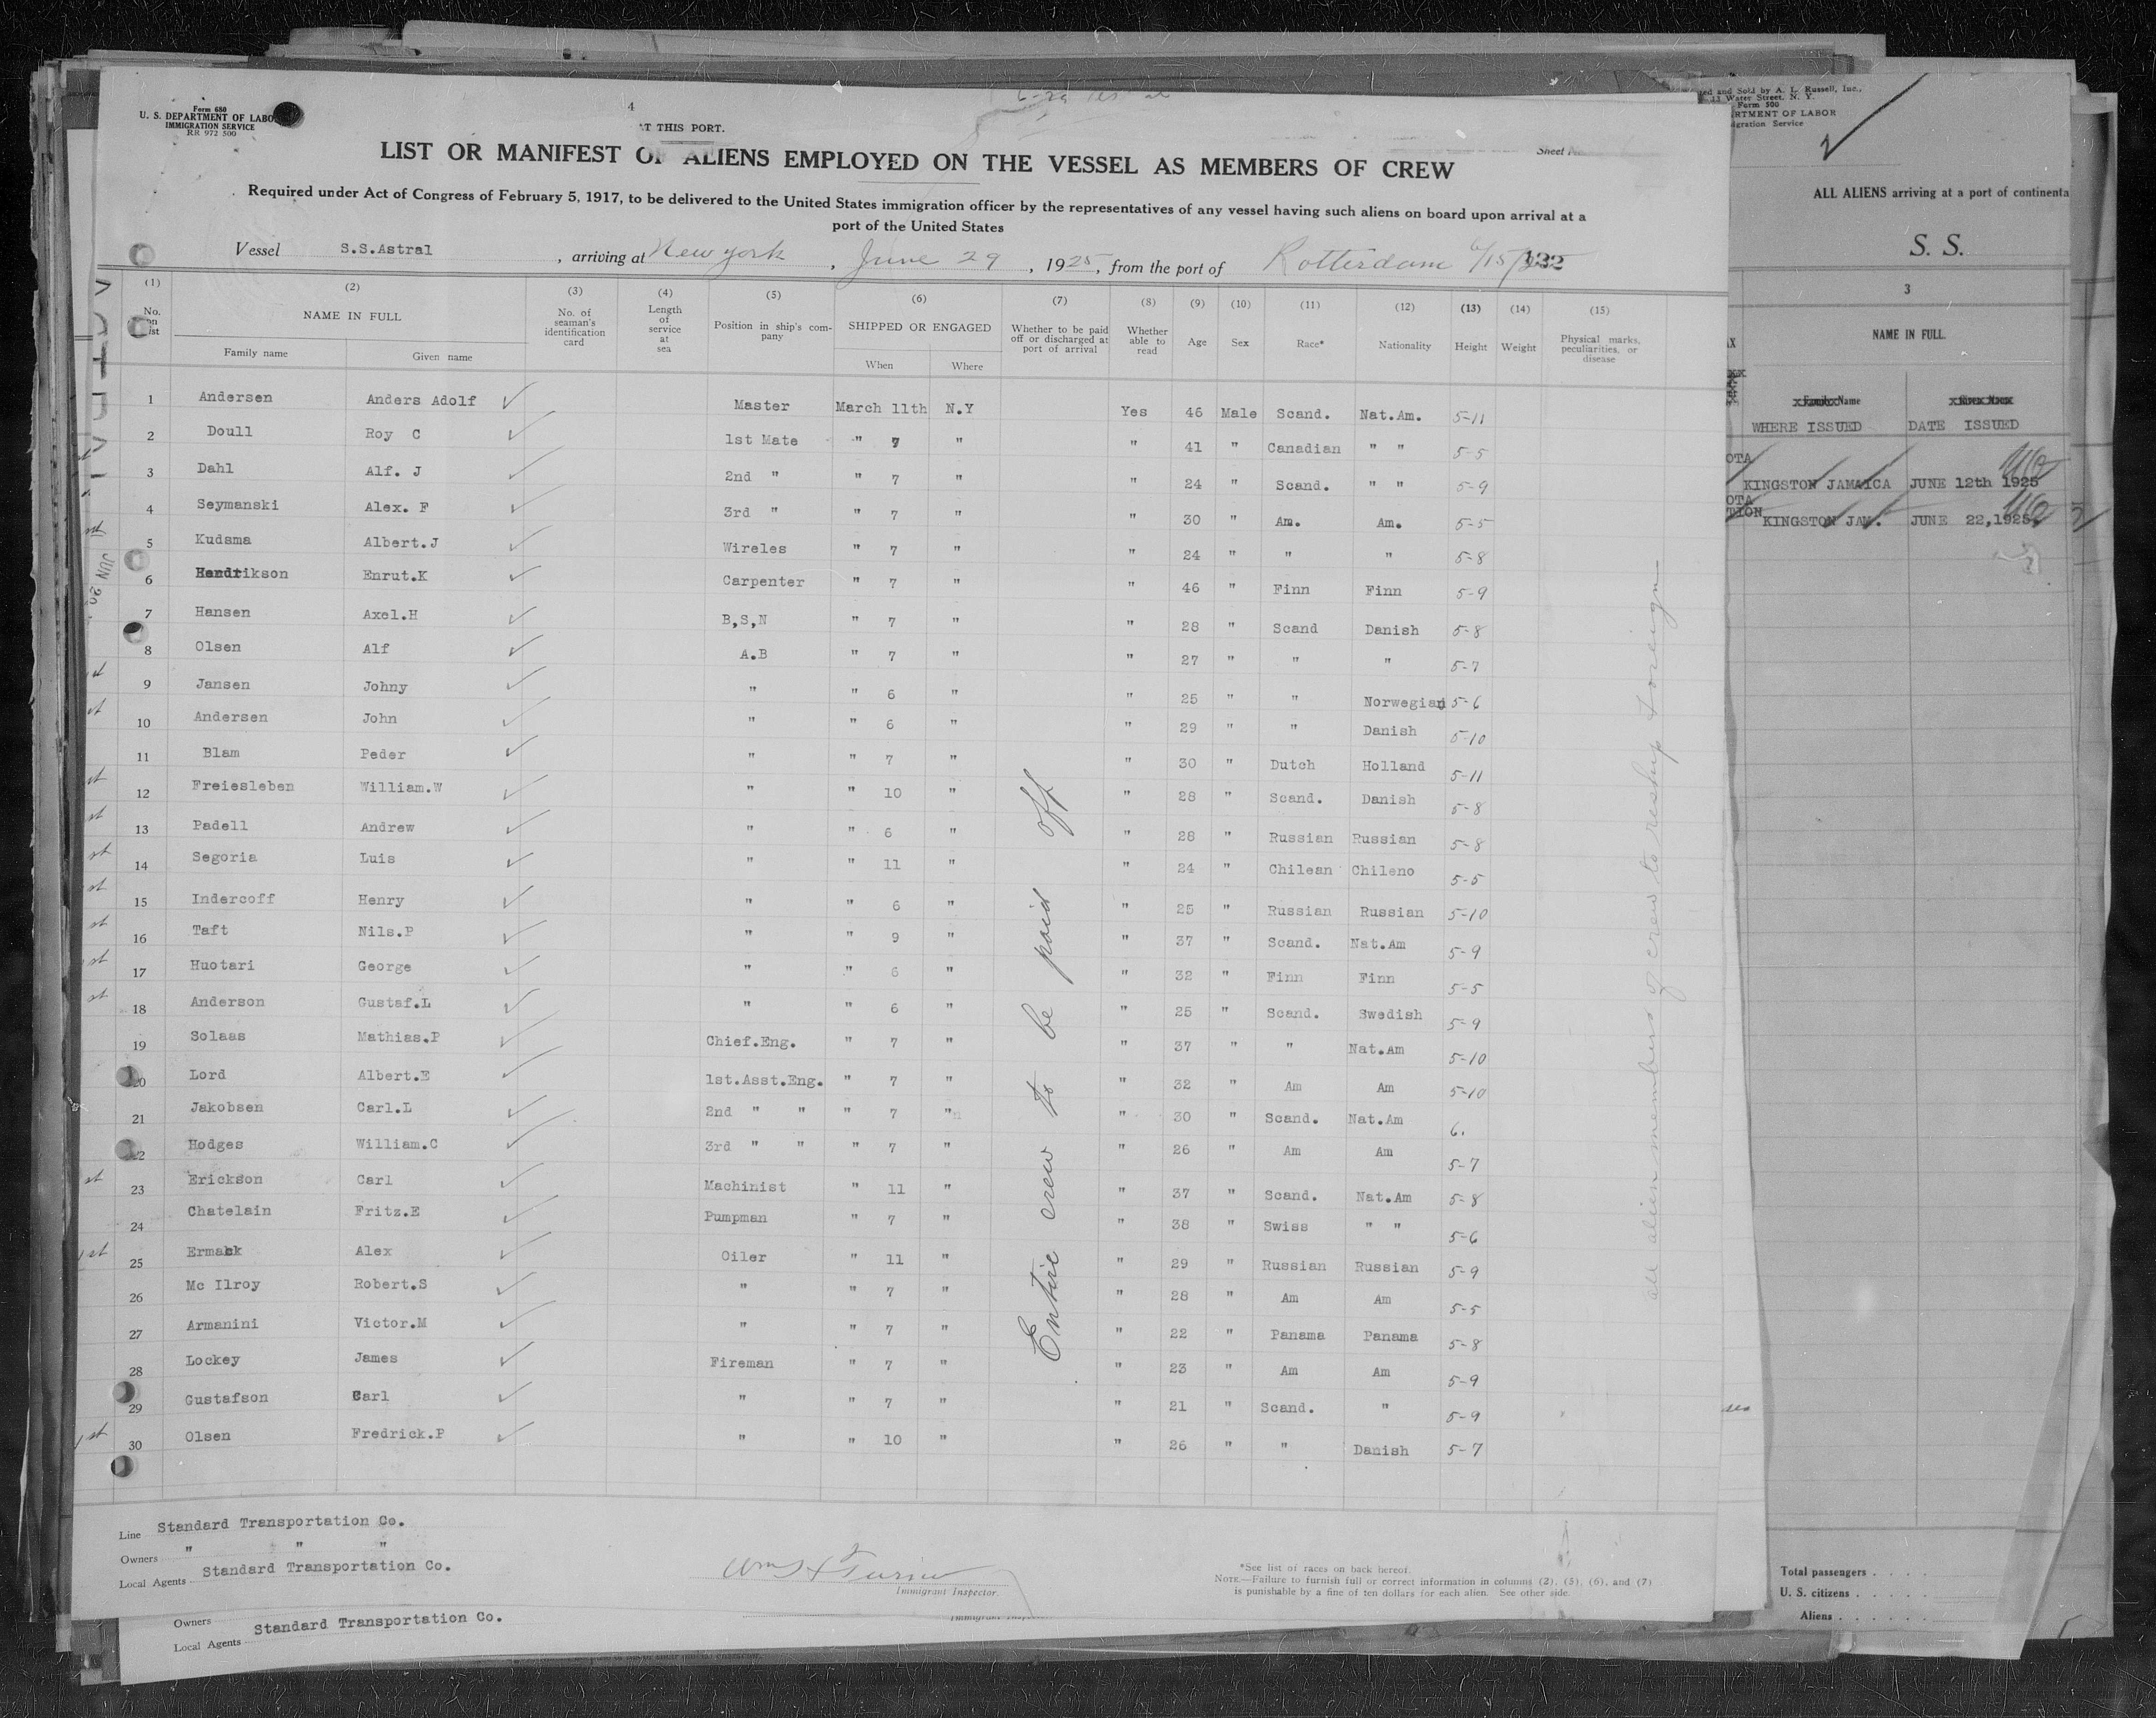 Form 680
U. S. DEPARTMENT OF LABO
IMMIGRATION SERVICE
RR 972 500
4
AT THIS PORT.
Sheet
LIST OR MANIFEST OF ALIENS EMPLOYED ON THE VESSEL AS MEMBERS OF CREW
Required under Act of Congress of February 5, 1917, to be delivered to the United States immigration officer by the representatives of any vessel having such aliens on board upon arrival at a
port of the United States
Vessel S.S.Astral , arriving at New york , June 29 , 1925, from the port of Rotterdam 6/15/
(1) (2) (3) (4) (5) (6) (7) (8) (9) (10) (11) (12) (13) (14) (15)
No. on list NAME IN FULL Family name Given name No. of seaman's identification card Length of service at sea Position in ship's company SHIPPED OR ENGAGED When Where Whether to be paid off or discharged at port of arrival Whether able to read Age Sex Race* Nationality Height Weight Physical marks, peculiarities, or disease
1 Andersen Anders Adolf ✓ Master March 11th N.Y Yes 46 Male Scand. Nat.Am. 5-11
2 Doull Roy C ✓ 1st Mate " 7 " " 41 " Canadian " " 5-5
3 Dahl Alf. J ✓ 2nd " " 7 " " 24 " Scand. " " 5-9
4 Seymanski Alex. F ✓ 3rd " " 7 " " 30 " Am. Am. 5-5
5 Kudsma Albert.J ✓ Wireles " 7 " " 24 " " " 5-8
6 Hendrikson Enrut.K ✓ Carpenter " 7 " " 46 " Finn Finn 5-9
7 Hansen Axel.H ✓ B,S,N " 7 " " 28 " Scand Danish 5-8
8 Olsen Alf ✓ A.B " 7 " " 27 " " " 5-7
9 Jansen Johny ✓ " " 6 " " 25 " " Norwegian 5-6
10 Andersen John ✓ " " 6 " " 29 " " Danish 5-10
11 Blam Peder ✓ " " 7 " " 30 " Dutch Holland 5-11
12 Freiesleben William.W ✓ " " 10 " " 28 " Scand. Danish 5-8
13 Padell Andrew ✓ " " 6 " " 28 " Russian Russian 5-8
14 Segoria Luis ✓ " " 11 " " 24 " Chilean Chileno 5-5
15 Indercoff Henry ✓ " " 6 " " 25 " Russian Russian 5-10
16 Taft Nils.P ✓ " " 9 " " 37 " Scand. Nat.Am 5-9
17 Huotari George ✓ " " 6 " " 32 " Finn Finn 5-5
18 Anderson Gustaf.L ✓ " " 6 " " 25 " Scand. Swedish 5-9
19 Solaas Mathias.P ✓ Chief.Eng. " 7 " " 37 " " Nat.Am 5-10
20 Lord Albert.E ✓ 1st.Asst.Eng. " 7 " " 32 " Am Am 5-10
21 Jakobsen Carl.L ✓ 2nd " " " 7 " " 30 " Scand. Nat.Am 6.
22 Hodges William.C ✓ 3rd " " " 7 " " 26 " Am Am 5-7
23 Erickson Carl ✓ Machinist " 11 " " 37 " Scand. Nat.Am 5-8
24 Chatelain Fritz.E ✓ Pumpman " 7 " " 38 " Swiss " " 5-6
25 Ermack Alex ✓ Oiler " 11 " " 29 " Russian Russian 5-9
26 Mc Ilroy Robert.S ✓ " " 7 " " 28 " Am Am 5-5
27 Armanini Victor.M ✓ " " 7 " " 22 " Panama Panama 5-8
28 Lockey James ✓ Fireman " 7 " " 23 " Am Am 5-9
29 Gustafson Carl ✓ " " 7 " " 21 " Scand. " 5-9
30 Olsen Fredrick.P ✓ " " 10 " " 26 " " Danish 5-7
Entire crew to be paid off
all alien members of crew to reship foreign
JUN 29
Line Standard Transportation Co.
Owners " " "
Local Agents Standard Transportation Co.
Immigrant Inspector.
*See list of races on back hereof.
NOTE.—Failure to furnish full or correct information in columns (2), (5), (6), and (7)
is punishable by a fine of ten dollars for each alien. See other side.
Owners
Local Agents Standard Transportation Co.
ed and Sold by A. L. Russell, Inc.,
Water Street, N. Y.
Form 500
RTMENT OF LABOR
igration Service
ALL ALIENS arriving at a port of continenta
S. S.
3
NAME IN FULL.
Family Name
WHERE ISSUED DATE ISSUED
OTA
KINGSTON JAMAICA JUNE 12th 1925
OTA
TION KINGSTON JAM. JUNE 22,1925.
Total passengers
U. S. citizens
Aliens